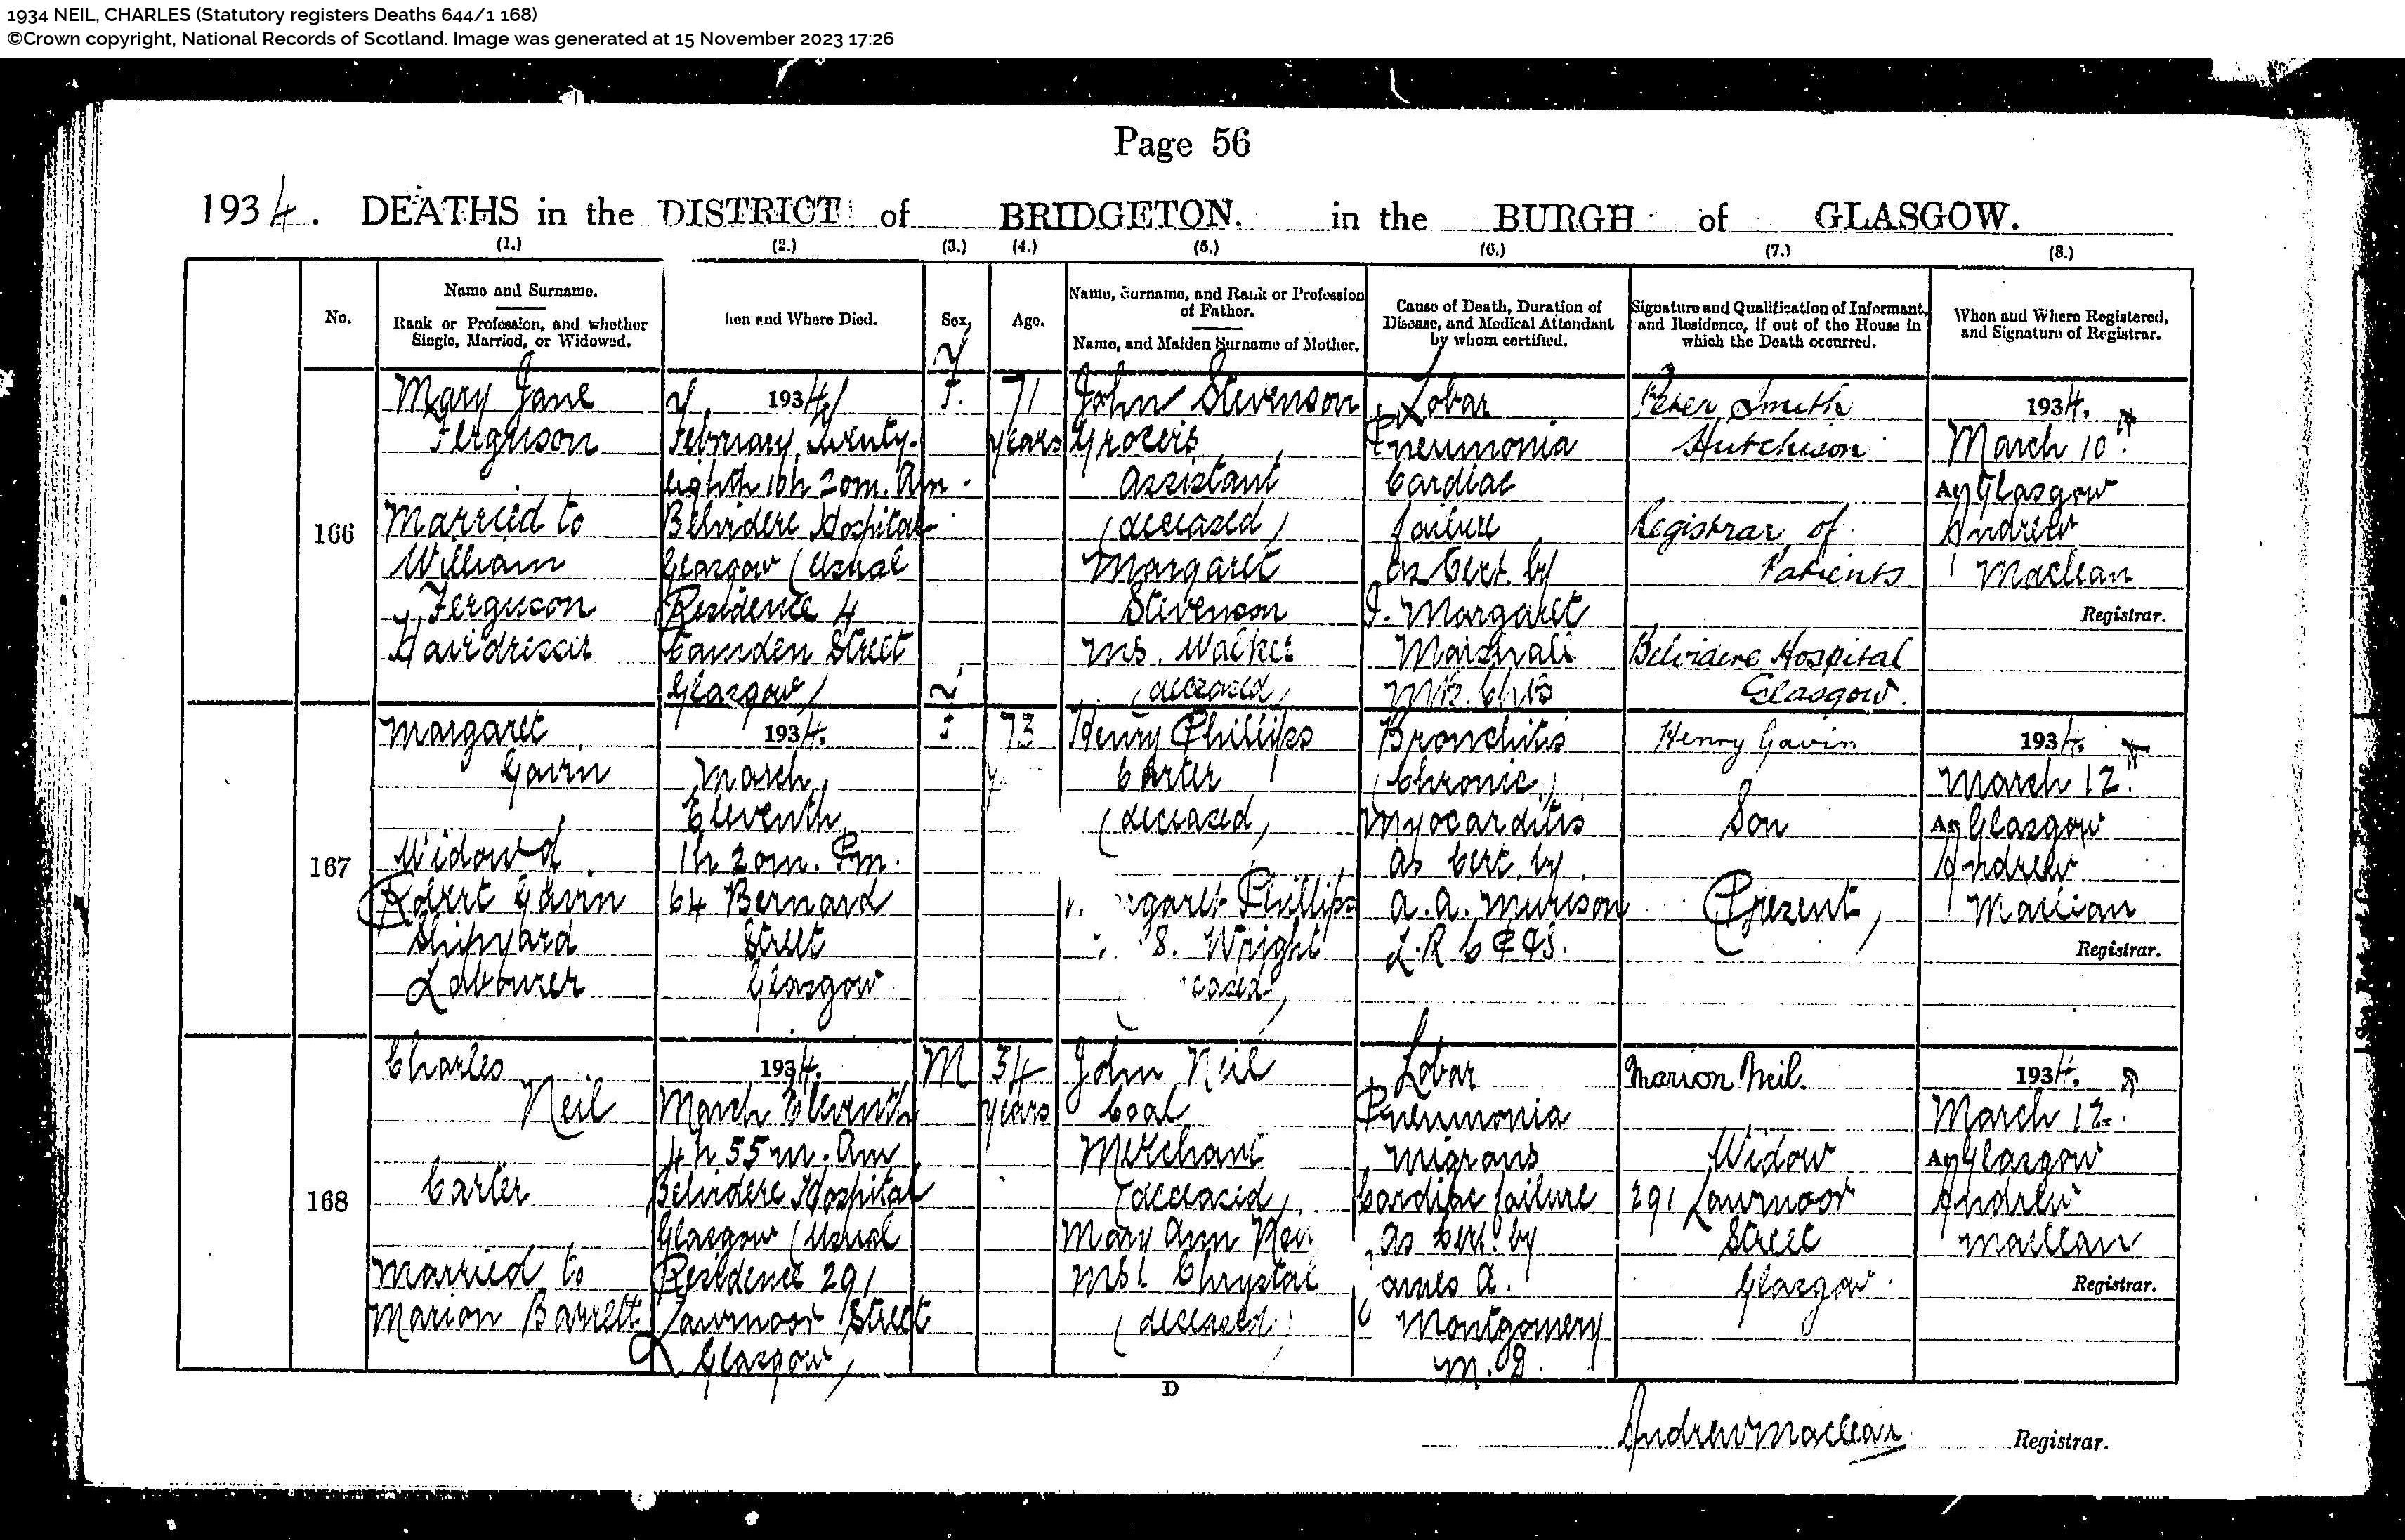 1934 NEIL, CHARLES (Statutory registers Deaths 644/1 168)
©Crown copyright, National Records of Scotland. Image was generated at 15 November 2023 17:26
Page 56
1934. DEATHS in the DISTRICT of BRIDGETON. in the BURGH of GLASGOW.
(1.) (2.) (3.) (4.) (5.) (6.) (7.) (8.)
No.
Name and Surname.
Rank or Profession, and whether
Single, Married, or Widowed.
and Where Died.
Sex.
Age.
Name, Surname, and Rank or Profession
of Father.
Name, and Maiden Surname of Mother.
Cause of Death, Duration of
Disease, and Medical Attendant
by whom certified.
Signature and Qualification of Informant,
and Residence, if out of the House in
which the Death occurred.
When and Where Registered,
and Signature of Registrar.
166
Mary Jane
Ferguson
Married to
William
Ferguson
Hairdresser
1934
February Twenty-
eighth 10h 20m. Am.
Belvidere Hospital
Glasgow (Usual
Residence 4
Camden Street
Glasgow)
F.
71
years
John Stevenson
Grocers
Assistant
(deceased)
Margaret
Stevenson
MS. Walker
(deceased)
Lobar
Pneumonia
Cardiac
failure
As Cert. by
J. Margaret
Marshall
MB. ChB
Peter Smith
Hutchison
Registrar of
Patients
Belvidere Hospital
Glasgow.
1934.
March 10th
At Glasgow
Andrew
Maclean
Registrar.
167
Margaret
Gavin
Widow of
Robert Gavin
Shipyard
Labourer
1934.
March
Eleventh
1h 20m. Pm.
64 Bernard
Street
Glasgow
F
73
Henry Phillips
Carter
(deceased)
Phillips
S. Wright
Bronchitis
(Chronic)
Myocarditis
As Cert. by
A. A. Murison
L.R.C.P.&S.
Henry Gavin
Son
(Present)
1934.
March 12th
At Glasgow
Andrew
Maclean
Registrar.
168
Charles
Neil
Carter
Married to
Marion Barrett
1934.
March Eleventh
4h 55m. Am
Belvidere Hospital
Glasgow (Usual
Residence 291
Lawmoor Street
Glasgow)
M
34
years
John Neil
Coal
Merchant
(deceased)
Mary Ann Neil
MS. Chrystal
(deceased)
Lobar
Pneumonia
Migrans
Cardiac failure
As Cert. by
James A.
Montgomery
M.D.
Marion Neil.
Widow
291 Lawmoor
Street
Glasgow.
1934.
March 12th
At Glasgow
Andrew
Maclean
Registrar.
D
Andrew Maclean Registrar.